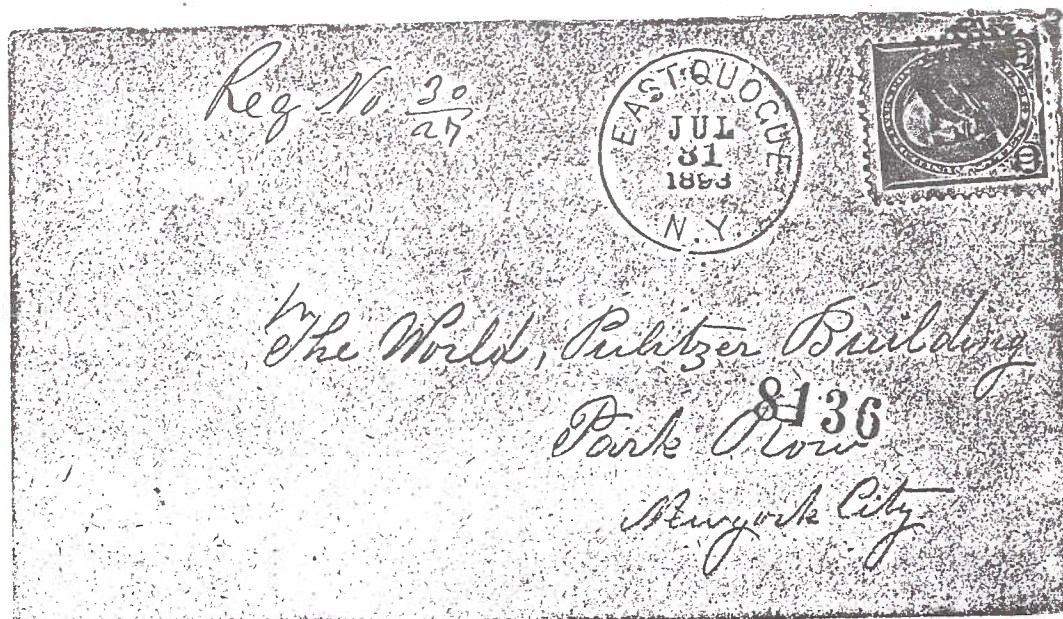 Reg No. 30/27
EAST QUOGUE
JUL
31
1893
N.Y.
The World, Pulitzer Building
8136
Park Row
Newyork City